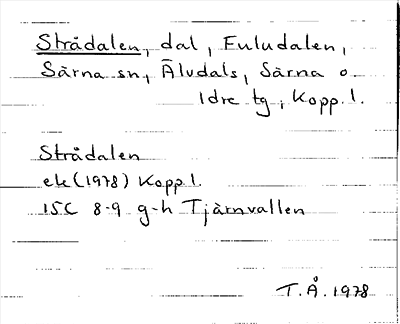 Strådalen, dal, Fuludalen,
Särna sn, Älvdals, Särna o
Idre tg, Kopp.l.
Strådalen
ek (1978) Kopp l.
15C 8-9 g-h Tjärnvallen
T.Å. 1978